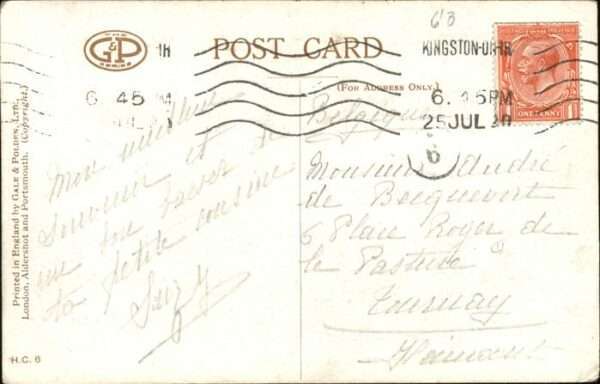 G&P
POST CARD
(FOR ADDRESS ONLY.)
63
KINGSTON-ON-TH
6. 45 PM
25 JUL 20
TH
6 45
JUL
ONE PENNY
6
Printed in England by GALE & POLDEN, LTD.,
London, Aldershot and Portsmouth. (Copyright.)
H.C. 6
Mon meilleur
souvenir et
un bon baiser de
ta petite cousine
Suzy
Belgique
Monsieur André
de Becquevort
6 Place Roger de
le Pasture
Tournay
Hainaut